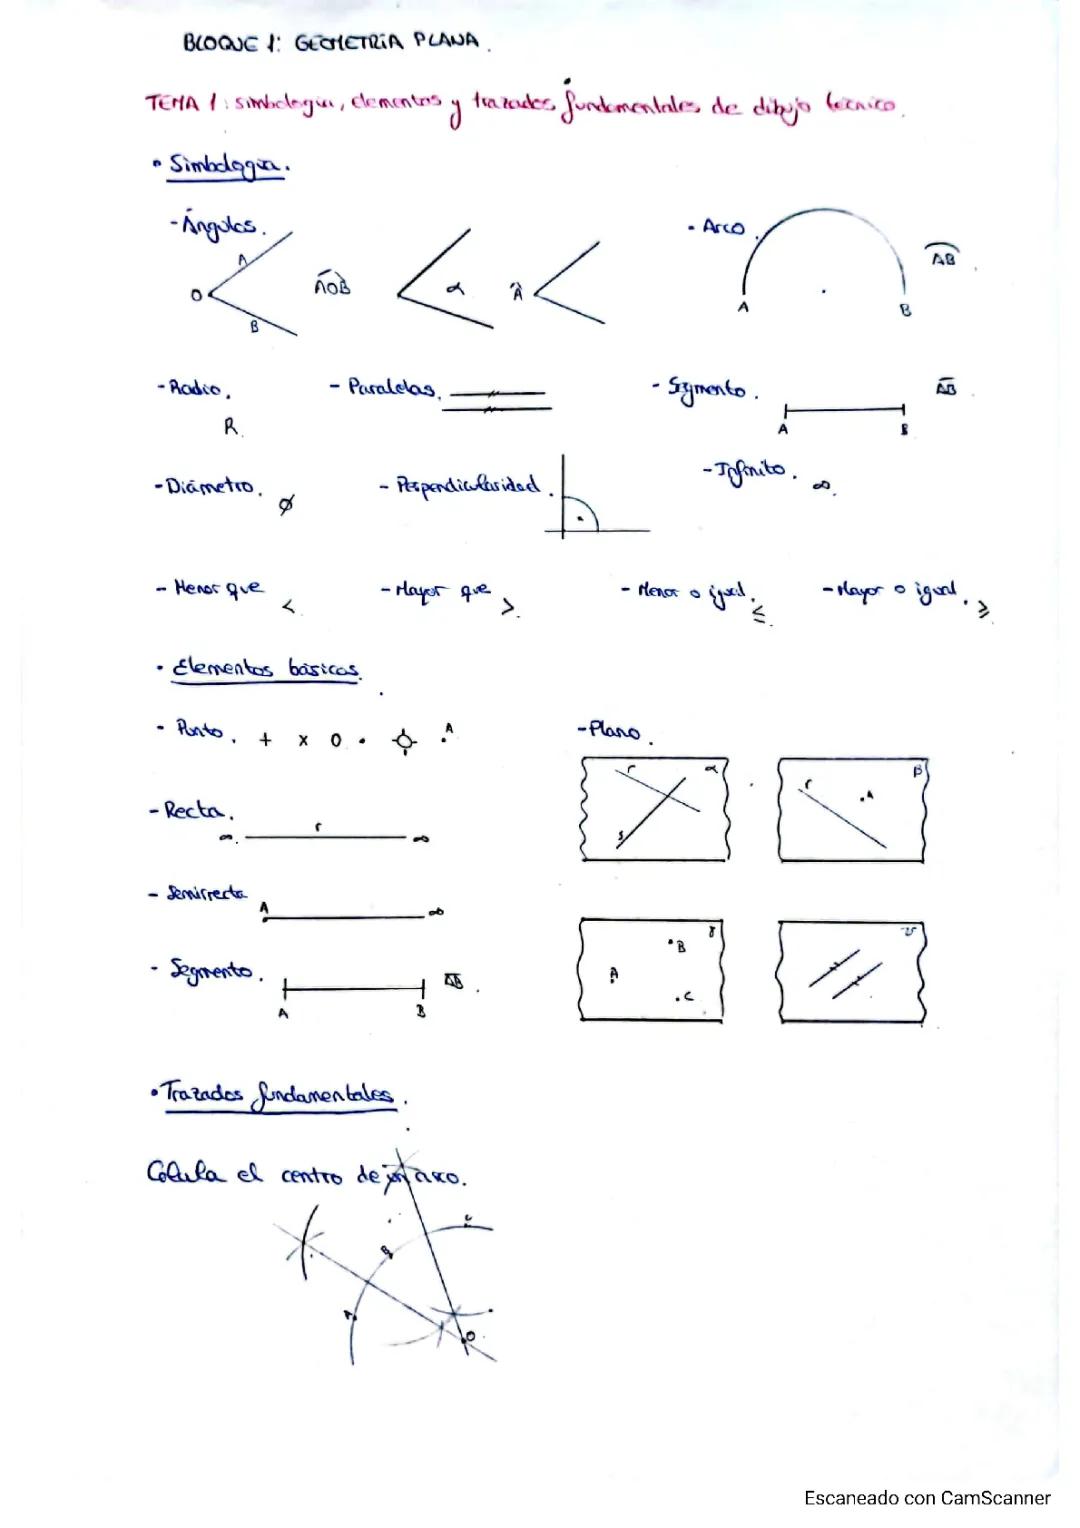 BLOQUE 1: GEOMETRÍA PLANA.
TEMA 1: simbología, elementos y trazados fundamentales de dibujo técnico.
• Simbología.
- Ángulos.
- Arco.
A
O
B
AOB
α
Â
A
B
AB
- Radio.
R
- Paralelas.
- Segmento.
A
B
AB
- Diámetro. ø
- Perpendicularidad.
- Infinito. ∞
- Menor que <
- Mayor que >
- Menor o igual. ≤
- Mayor o igual. ≥
• Elementos básicos.
- Punto. + x o • A
- Plano.
r
s
α
r
A
β
- Recta.
∞ r ∞
- Semirrecta
A ∞
- Segmento.
A
B
AB
A
B
C
γ
• Trazados fundamentales.
Calcula el centro de un arco.
A
B
C
O
Escaneado con CamScanner